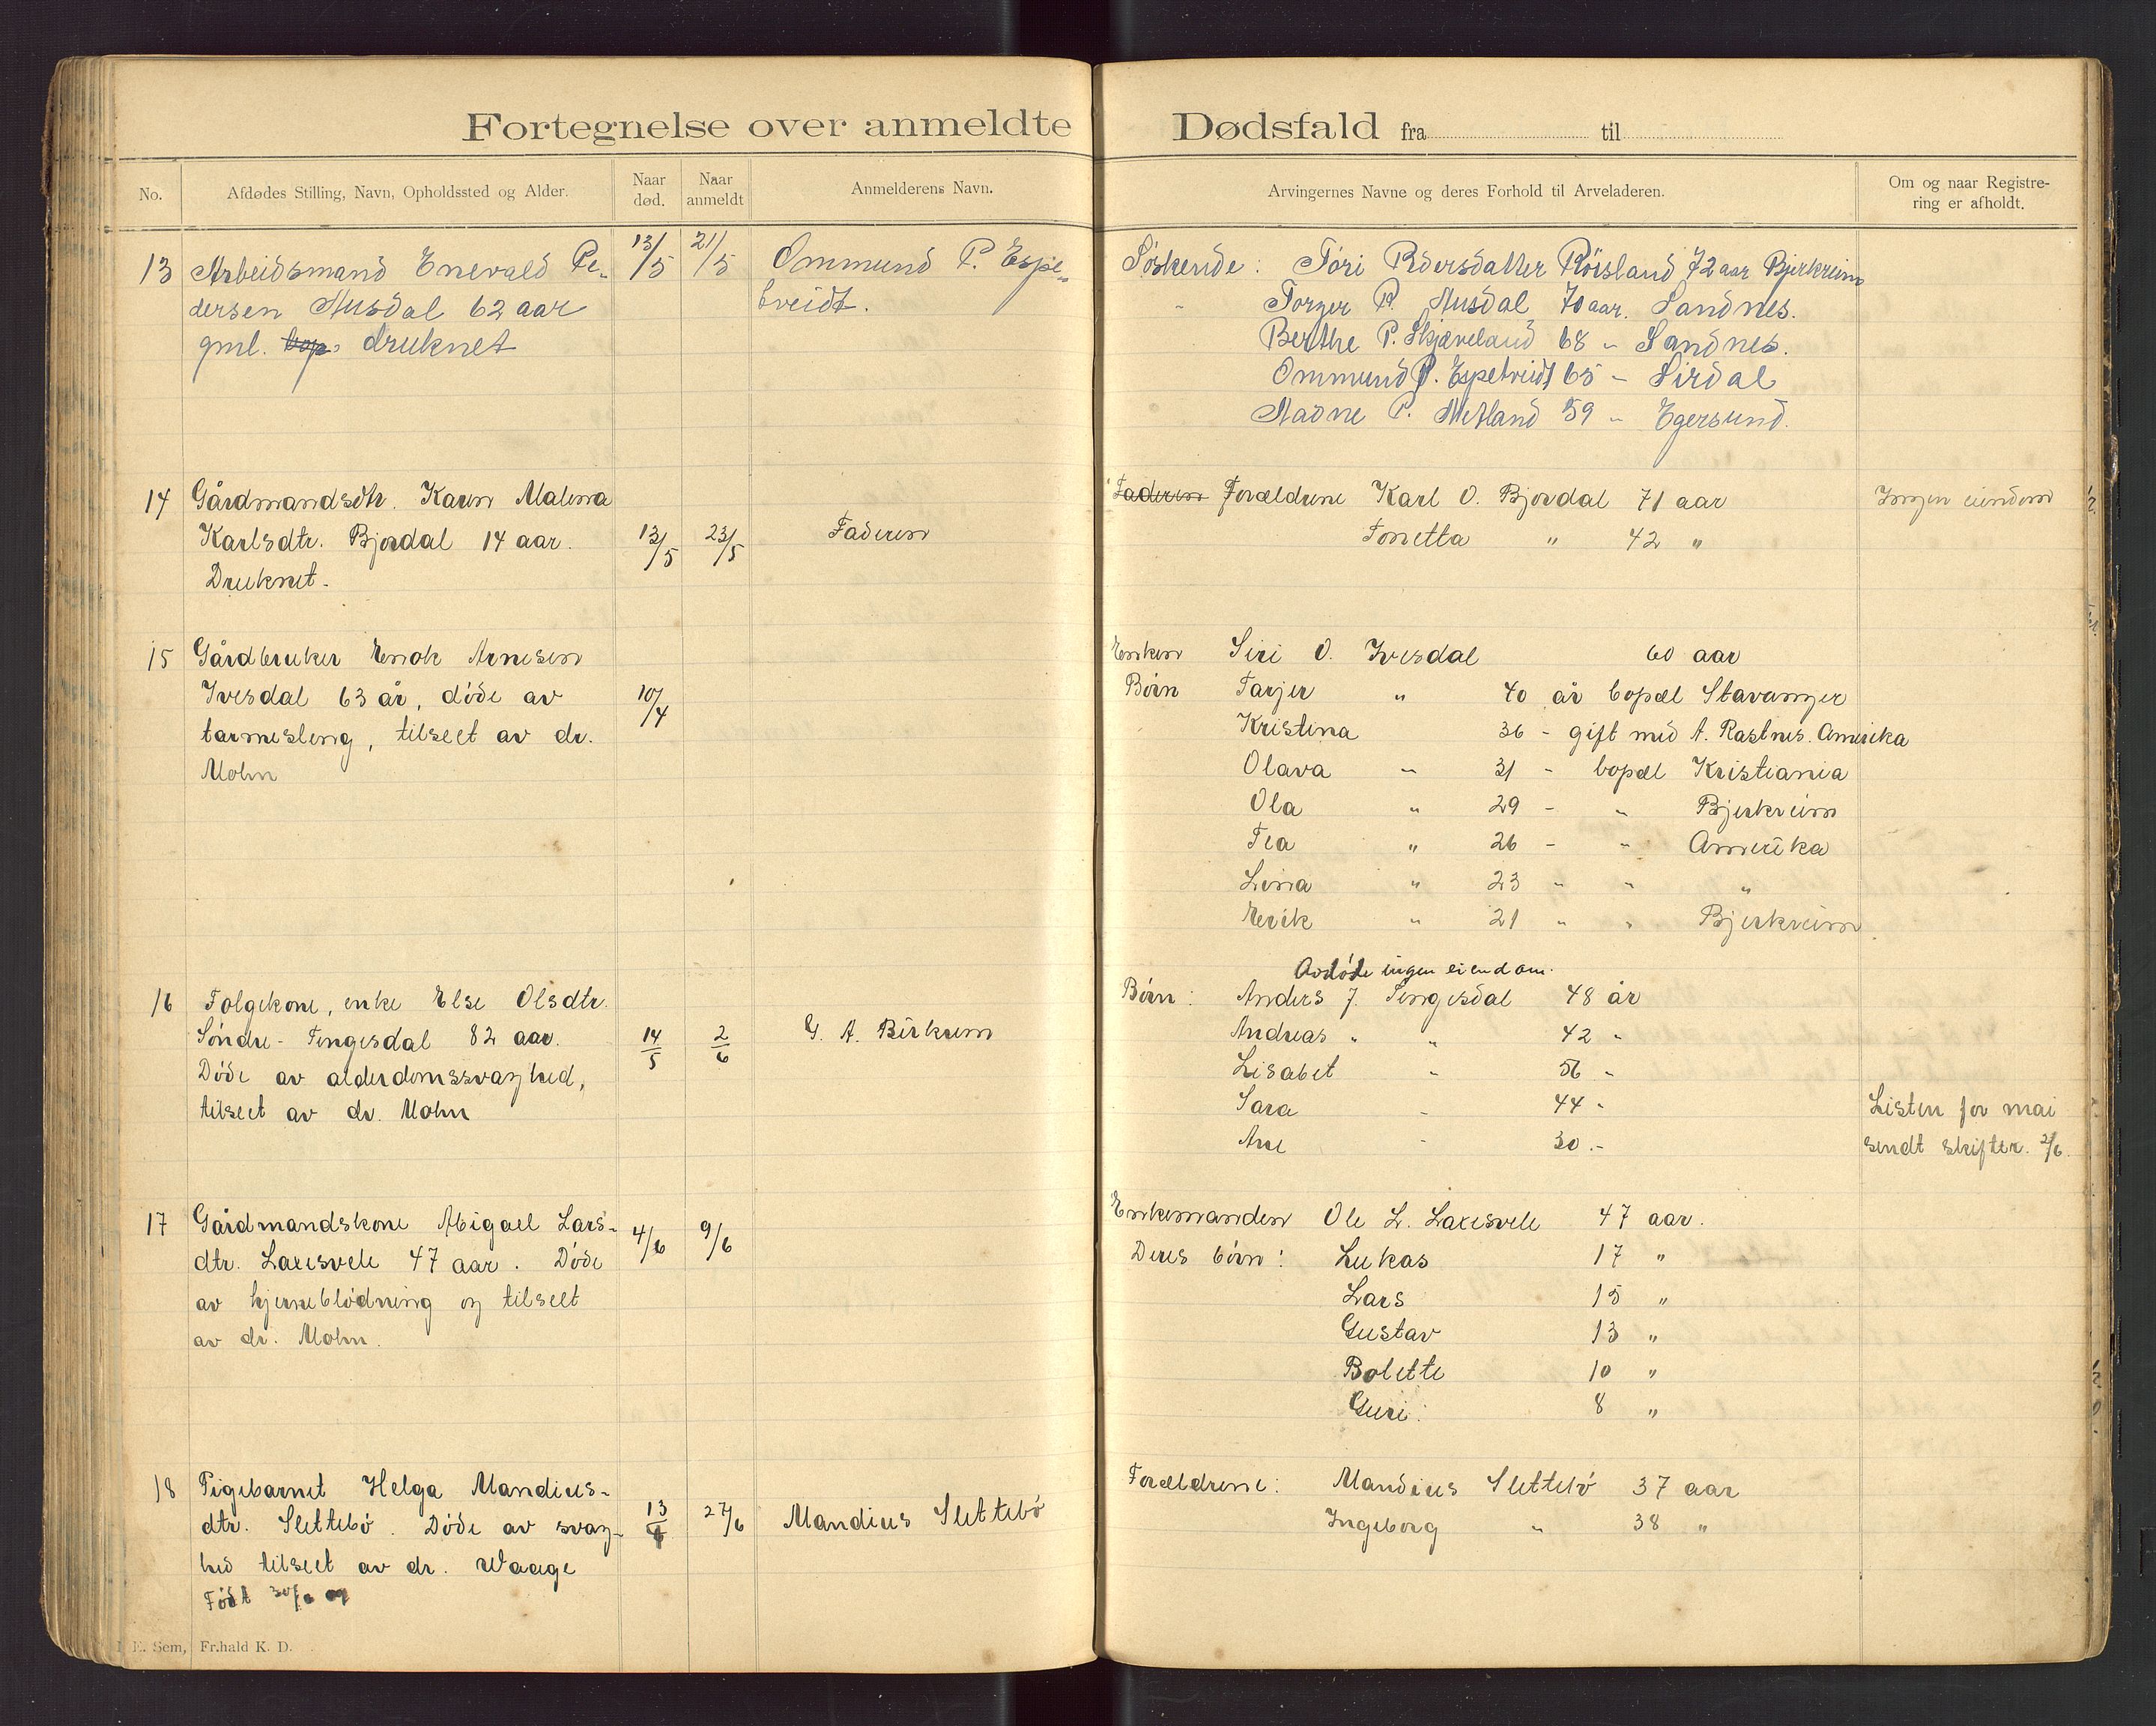 Fortegnelse over anmeldte Dødsfald fra til
No. Afdødes Stilling, Navn, Opholdssted og Alder. Naar død. Naar anmeldt Anmelderens Navn. Arvingernes Navne og deres Forhold til Arveladeren. Om og naar Registrering er afholdt.
13 Arbeidsmand Enevald Pe- 13/5 21/5 Ommund P. Espe-
dersen Ausdal 62 aar tveidt.
gml. druknet
Søskende: Tori Pedersdatter Röisland 72 aar Bjerkreim
" Torger P. Ausdal 70 aar. Sandnes.
Berthe P. Skjæveland 68 " Sandnes.
Ommund P. Espetveidt 65 " Sirdal
Aadne P. Netland 59 " Egersund.
14 Gårdmandsdtr. Karen Malena
Karlsdtr. Bjordal 14 aar. 13/5 23/5 Faderen
Druknet.
Faderen Forældrene Karl O. Bjordal 71 aar Ingen eiendom
Tonetta " 42 "
15 Gårdbruker Enok Arnesen
Ivesdal 63 år, døde av 10/4
tarmesleng, tilseet av dr.
Mohn
Enken Siri O. Ivesdal 60 aar
Børn Tarjer " 40 år bopæl Stavanger
Kristina 36 - gift med A. Rastnes. Amerika
Olava " 31 - bopæl Kristiania
Ola " 29 - " Bjerkreim
Tea " 26 - " Amerika
Lina " 23 " " "
Enrik " 21 " " Bjerkreim
Avdøde ingen eiendom.
16 Følgekone, enke Else Olsdtr.
Söndre-Tengesdal 82 aar. 14/5 2/6 G. A. Birkrem
Døde av alderdomssvaghed,
tilseet av dr. Mohn
Børn: Anders J. Tengesdal 48 år
Andreas " " 42 "
Lisabet " 56 "
Sara " 44 " Listen for mai
Ane " 30 .- sendt skifter. 2/6.
17 Gårdmandskone Abigael Lars- 4/6 9/6
dtr. Laxesvele 47 aar. Døde
av hjerneblødning og tilseet
av dr. Mohn.
Enkemanden Ole L. Laxesvele 47 aar.
Deres børn: Lukas 17 "
Lars 15 "
Gustav 13 "
Bolette 10 "
Guri 8 "
18 Pigebarnet Helga Mandius-
dtr. Slettebø. Døde av svag- 13/6 27/6 Mandius Slettebø
hed tilseet av dr. Waage
Født
Forældrene: Mandius Slettebø 37 aar
Ingeborg " 38 "
E. Sem, Fr.hald K. D.